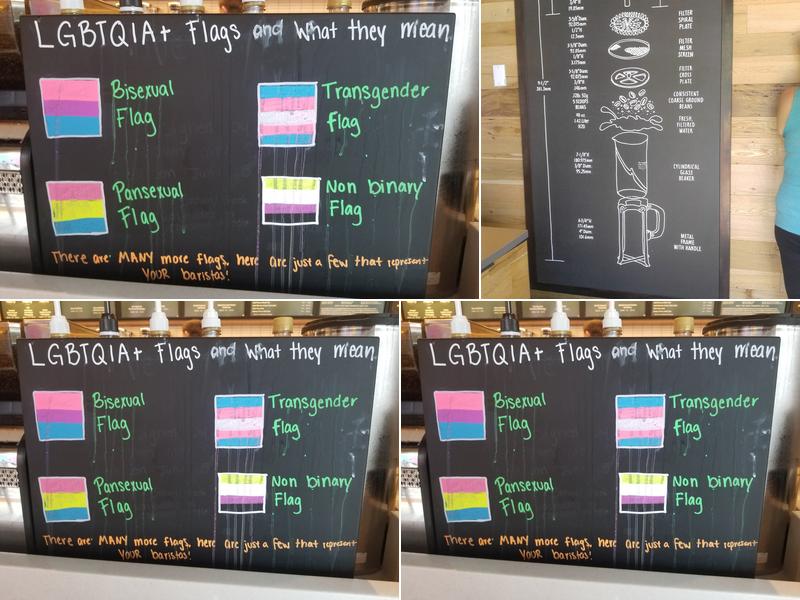 LGBTQIA+ Flags and What they mean
Bisexual
Flag
Transgender
flag
Pansexual
Flag
Non binary
Flag
There are MANY more flags, here are just a few that represent
YOUR baristas!
FILTER
SPIRAL
PLATE
FILTER
MESH
SCREEN
FILTER
CROSS
PLATE
CONSISTENT
COARSE GROUND
BEANS
FRESH,
FILTERED
WATER
CYLINDRICAL
GLASS
BEAKER
METAL
FRAME
WITH HANDLE
LGBTQIA+ Flags and What they mean
Bisexual
Flag
Transgender
flag
Pansexual
Flag
Non binary
Flag
There are MANY more flags, here are just a few that represent
YOUR baristas!
LGBTQIA+ Flags and What they mean
Bisexual
Flag
Transgender
flag
Pansexual
Flag
Non binary
Flag
There are MANY more flags, here are just a few that represent
YOUR baristas!